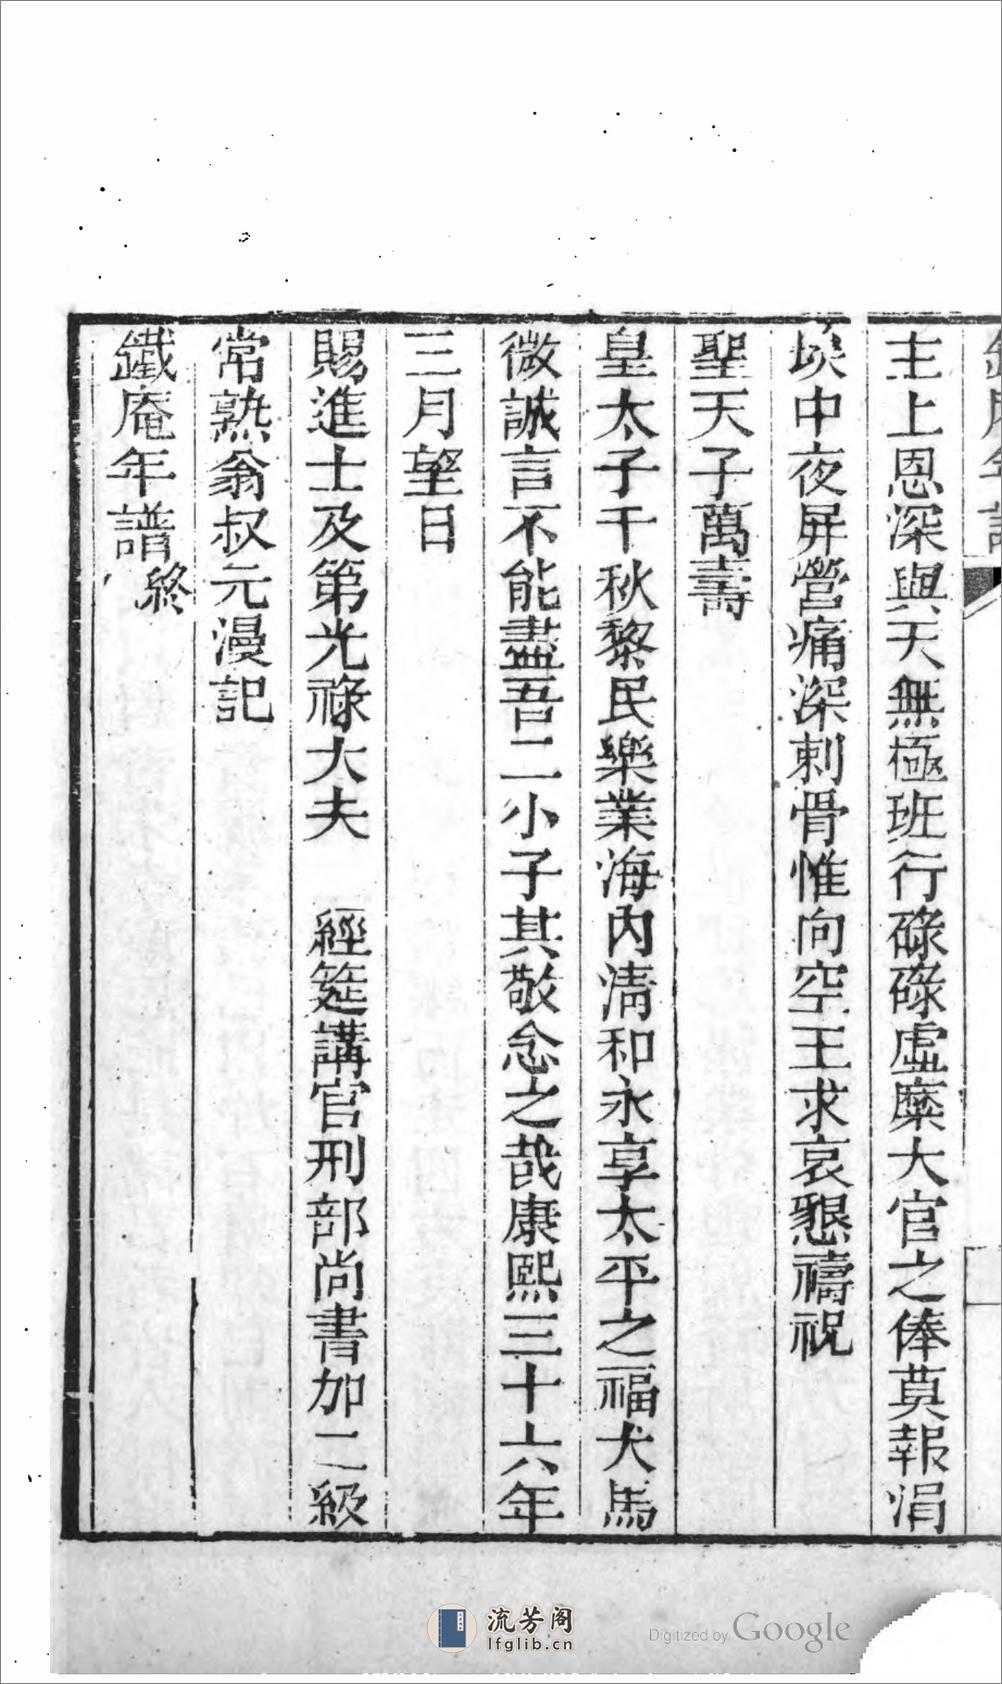 主上恩深與天無極班行碌碌虛糜大官之俸莫報涓
埃中夜屏營痛深刺骨惟向空王求哀懇禱祝
聖天子萬壽
皇太子千秋黎民樂業海內清和永享太平之福犬馬
微誠言不能盡吾二小子其敬念之哉康熙三十六年
三月望日
賜進士及第光祿大夫　經筵講官刑部尚書加二級
常熟翁叔元漫記
鐵庵年譜終
流芳阁
lfglib.cn
Digitized by Google